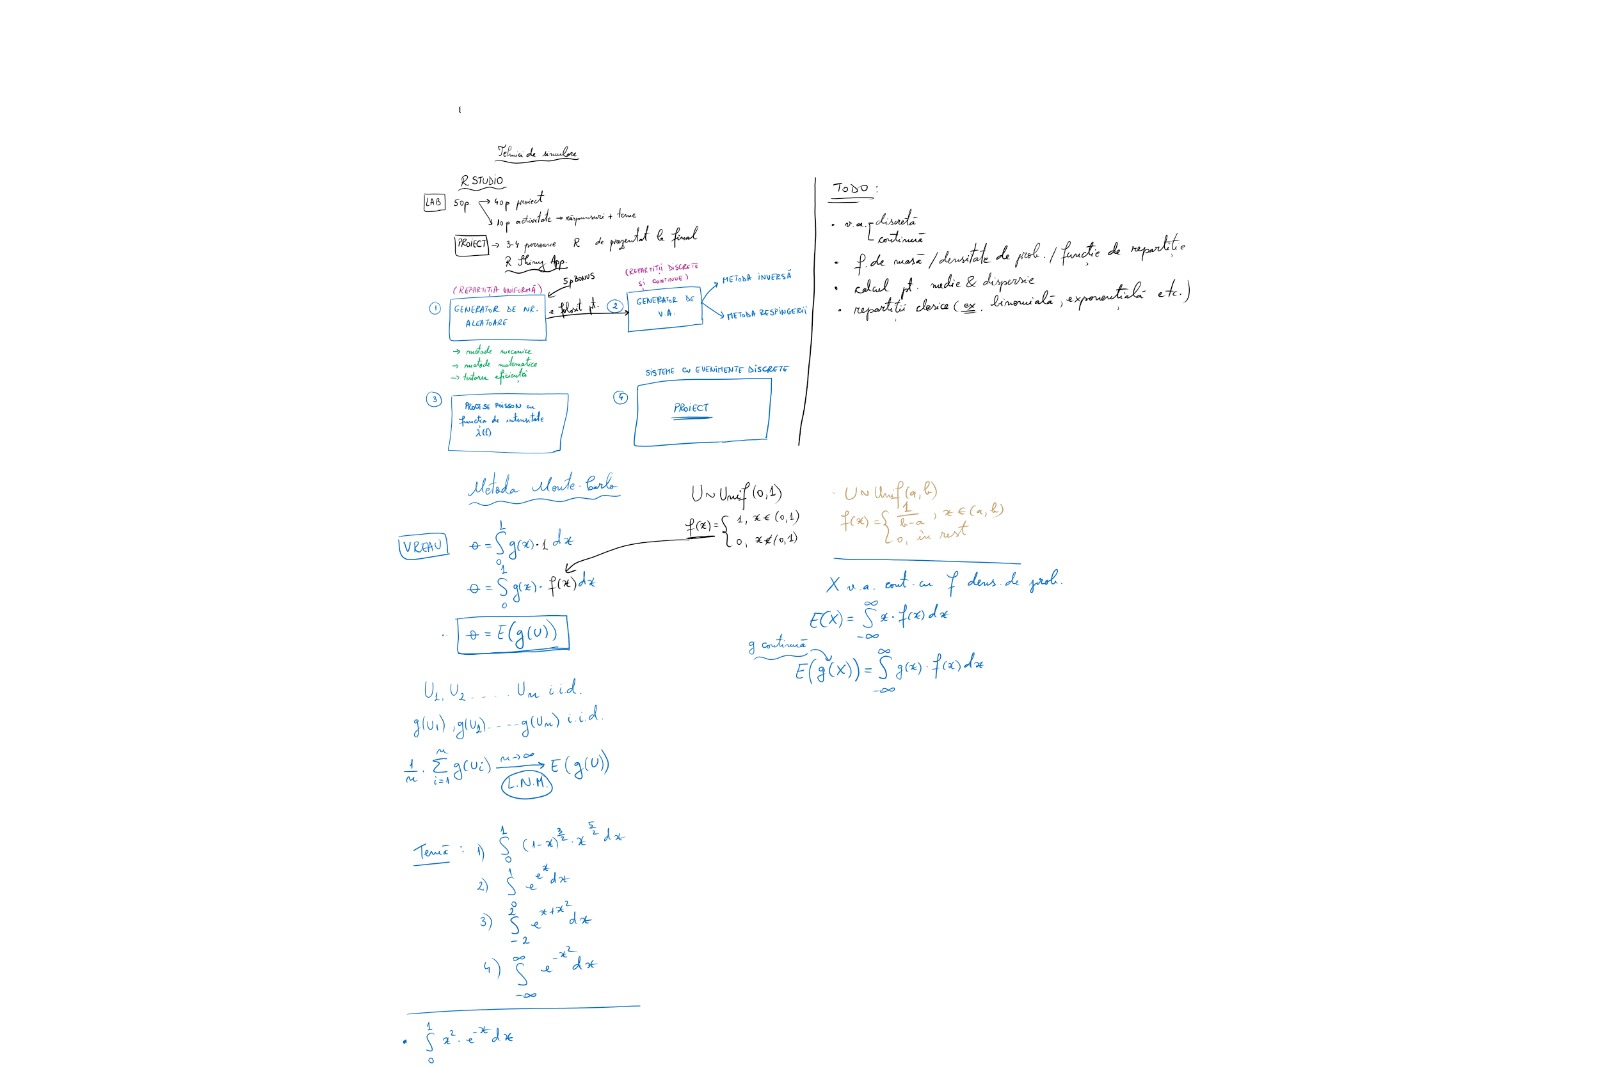 Tehnici de simulare
R STUDIO
LAB 50p → 40p proiect
→ 10p activitate → răspunsuri + teme
PROIECT → 3-4 persoane R de prezentat la final
R Shiny App.
5p BONUS
(REPARTIȚIA UNIFORMĂ)
① GENERATOR DE NR. ALEATOARE
e folosit pt.
(REPARTIȚII DISCRETE ȘI CONTINUE)
② GENERATOR DE V.A.
→ METODA INVERSĂ
→ METODA RESPINGERII
→ metode mecanice
→ metode matematice
→ testarea eficienței
③ PROCESE POISSON cu
funcția de intensitate
λ(t)
SISTEME CU EVENIMENTE DISCRETE
④ PROIECT
TODO :
• v.a. discretă
continuă
• f. de masă / densitate de prob. / funcție de repartiție
• calcul pt. medie & dispersie
• repartiții clasice (ex. binomială, exponențială etc.)
Metoda Monte-Carlo
VREAU θ = ∫₀¹ g(x)·1 dx
θ = ∫₀¹ g(x)· f(x)dx
θ = E(g(U))
U ~ Unif (0,1)
f(x) = { 1, x ∈ (0,1)
0, x ∉ (0,1)
• U ~ Unif (a,b)
f(x) = { 1/(b-a), x ∈ (a,b)
0, în rest
X v.a. cont. cu f dens. de prob.
E(X) = ∫_{-∞}^{∞} x · f(x) dx
g continuă
E(g(X)) = ∫_{-∞}^{∞} g(x) · f(x) dx
U₁, U₂ ..... Uₙ i.i.d.
g(U₁), g(U₂) .... g(Uₙ) i.i.d.
1/n · Σ_{i=1}^{n} g(Uᵢ) → E(g(U))
n→∞
L.N.M.
Temă : 1) ∫₀¹ (1-x)^{3/2} · x^{5/2} dx
2) ∫₀¹ e^{e^x} dx
3) ∫_{-2}^{2} e^{x+x²} dx
4) ∫_{-∞}^{∞} e^{-x²} dx
• ∫₀¹ x² · e^{-x} dx